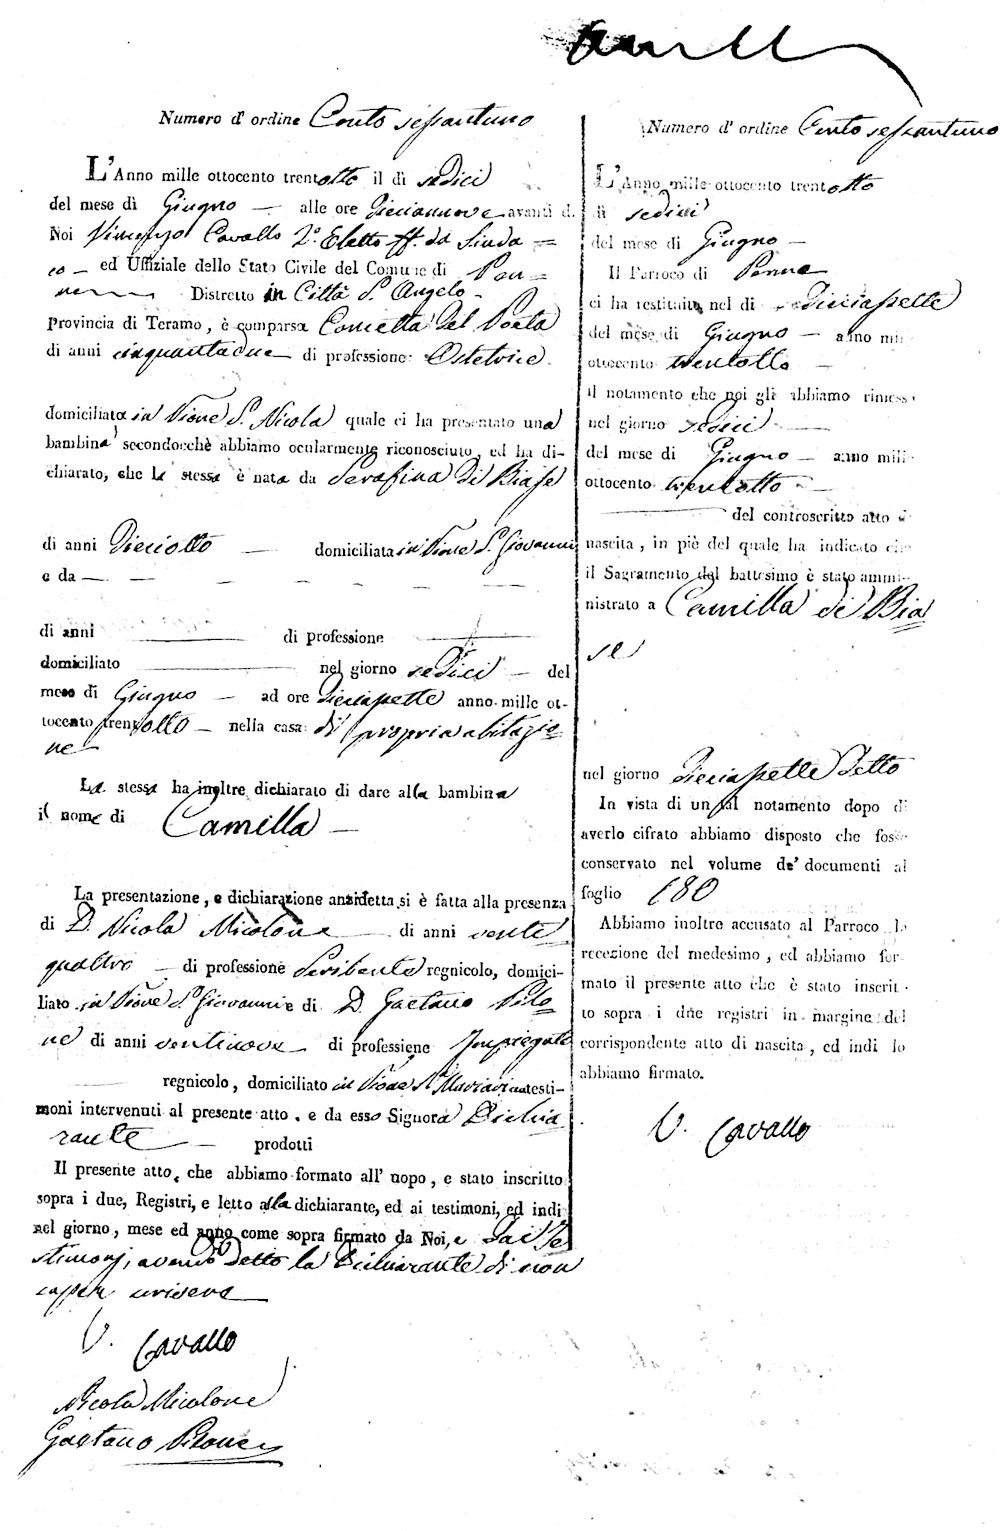 Numero d' ordine Cento sessantuno
L'Anno mille ottocento trentotto il di sedici
del mese di Giugno — alle ore diecinnove avanti di
Noi Vincenzo Cavallo 2.° Eletto ff. da Sinda=
co — ed Uffiziale dello Stato Civile del Comune di Pen=
ne — Distretto in Città S. Angelo
Provincia di Teramo, è comparsa Concetta del Poeta
di anni cinquantadue di professione Ostetrice
domiciliata in Rione S. Nicola quale ci ha presentato una
bambina secondocchè abbiamo ocularmente riconosciuto, ed ha di-
chiarato, che la stessa è nata da Serafina di Biase
di anni dieciotto — domiciliata in Rione S. Giovanni
e da — —
di anni di professione
domiciliato nel giorno sedici — del
mese di Giugno — ad ore dieciassette anno mille ot-
tocento trentotto — nella casa di propria abitazio=
ne
La stessa ha inoltre dichiarato di dare alla bambina
il nome di Camilla —
La presentazione, e dichiarazione anzidetta si è fatta alla presenza
di D. Nicola Micolone — di anni venti
quattro — di professione Scribente regnicolo, domici-
liato in Rione S. Giovanni e di D. Gaetano Pilo=
ne di anni ventinove di professione Impiegato
regnicolo, domiciliato in Rione S. testi-
moni intervenuti al presente atto, e da esso Signora Dichia
rante — prodotti
Il presente atto, che abbiamo formato all' uopo, e stato inscritto
sopra i due, Registri, e letto alla dichiarante, ed ai testimoni, ed indi
nel giorno, mese ed anno come sopra firmato da Noi, e dai Te
stimonj, avendo detto la Dichiarante di non
saper scrivere
V. Cavallo
Nicola Micolone
Gaetano Pilone
Numero d' ordine Cento sessantuno
L'Anno mille ottocento trentotto
di sedici
del mese di Giugno —
Il Parroco di Penne
ci ha restituito nel di dieciassette
del mese di Giugno — anno mille
ottocento trentotto —
il notamento che noi gli abbiamo rimesso
nel giorno sedici
del mese di Giugno — anno mille
ottocento trentotto —
del controscritto atto di
nascita, in piè del quale ha indicato che
il Sagramento del battesimo è stato ammi-
nistrato a Camilla di Bia
se
nel giorno dieciassette detto
In vista di un tal notamento dopo di
averlo cifrato abbiamo disposto che fosse
conservato nel volume de' documenti al
foglio 180
Abbiamo inoltre accusato al Parroco la
recezione del medesimo, ed abbiamo for-
mato il presente atto che è stato inscrit-
to sopra i due registri in margine del
corrispondente atto di nascita, ed indi lo
abbiamo firmato.
V. Cavallo